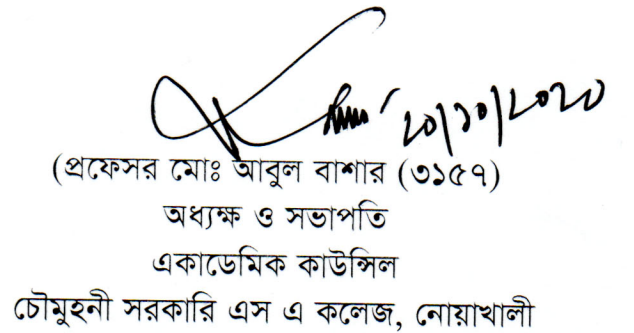 ২০/১০/২০২০
(প্রফেসর মোঃ আবুল বাশার (৩১৫৭)
অধ্যক্ষ ও সভাপতি
একাডেমিক কাউন্সিল
চৌমুহনী সরকারি এস এ কলেজ, নোয়াখালী